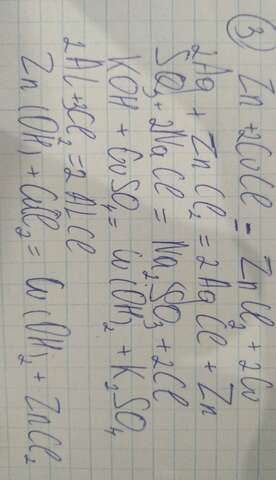 ③ Zn + 2CuCl = ZnCl₂ + 2Cu
2Ag + ZnCl₂ = 2AgCl + Zn
SO₃ + 2NaCl = Na₂SO₃ + 2Cl
KOH + CuSO₄ = Cu(OH)₂ + K₂SO₄
2Al + 3Cl₂ = 2AlCl
Zn(OH) + CuCl₂ = Cu(OH)₂ + ZnCl₂